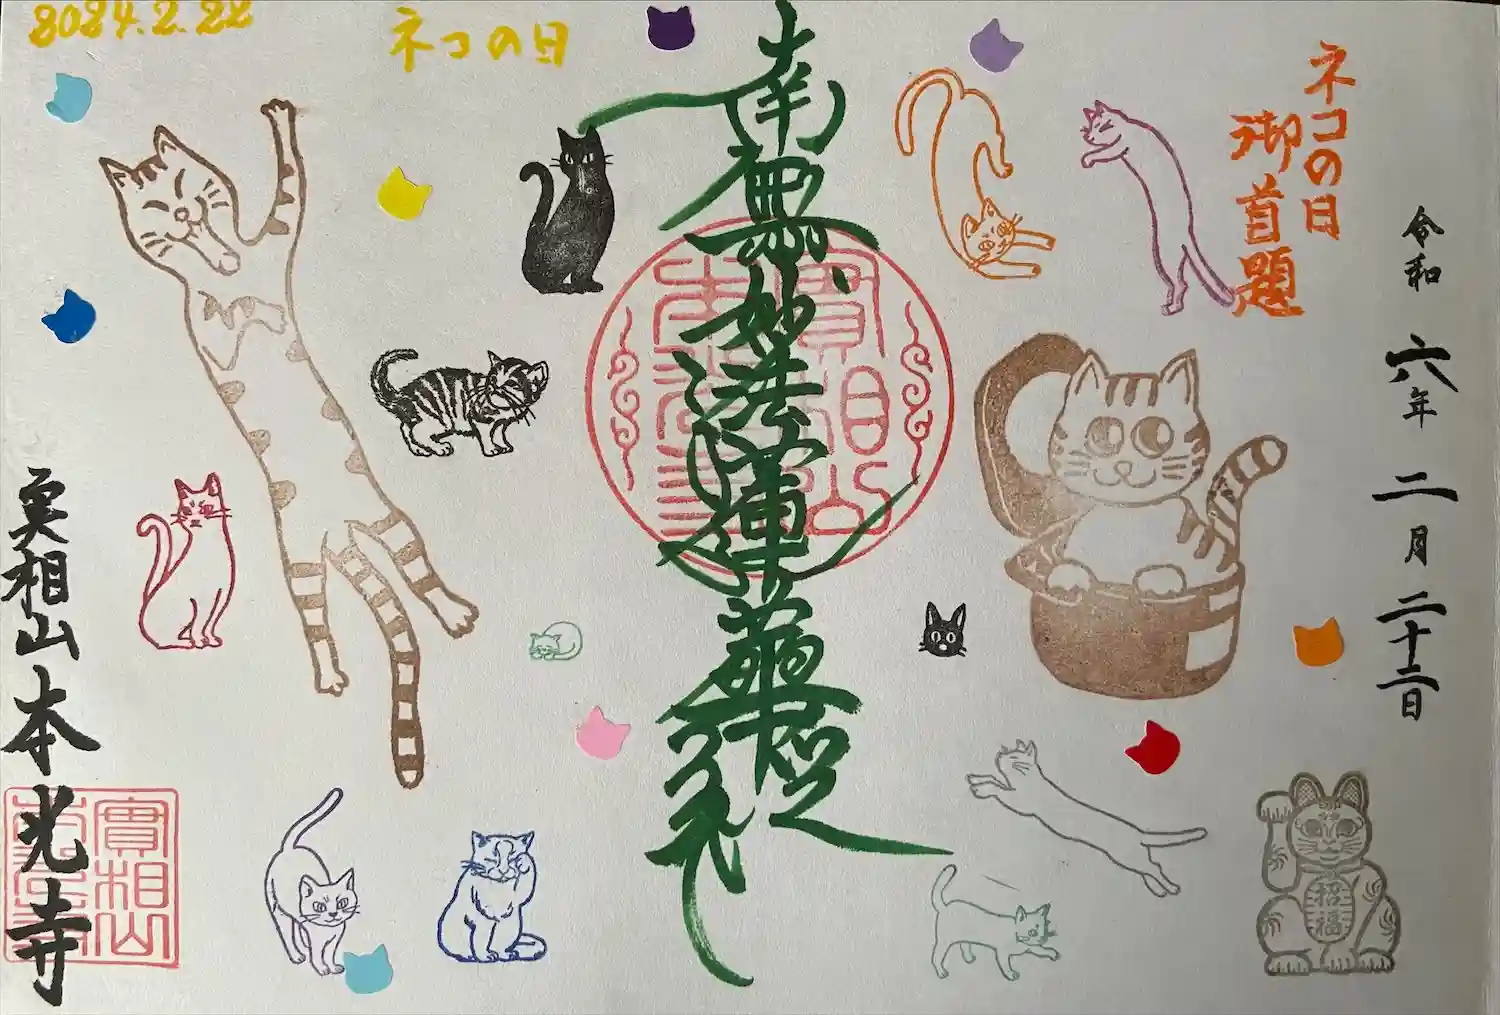 2024.2.22
ネコの日
令和六年二月二十二日
ネコの日
御首題
南無妙法蓮華経
實相山
本光寺
招福
実相山本光寺
實相山
本光寺